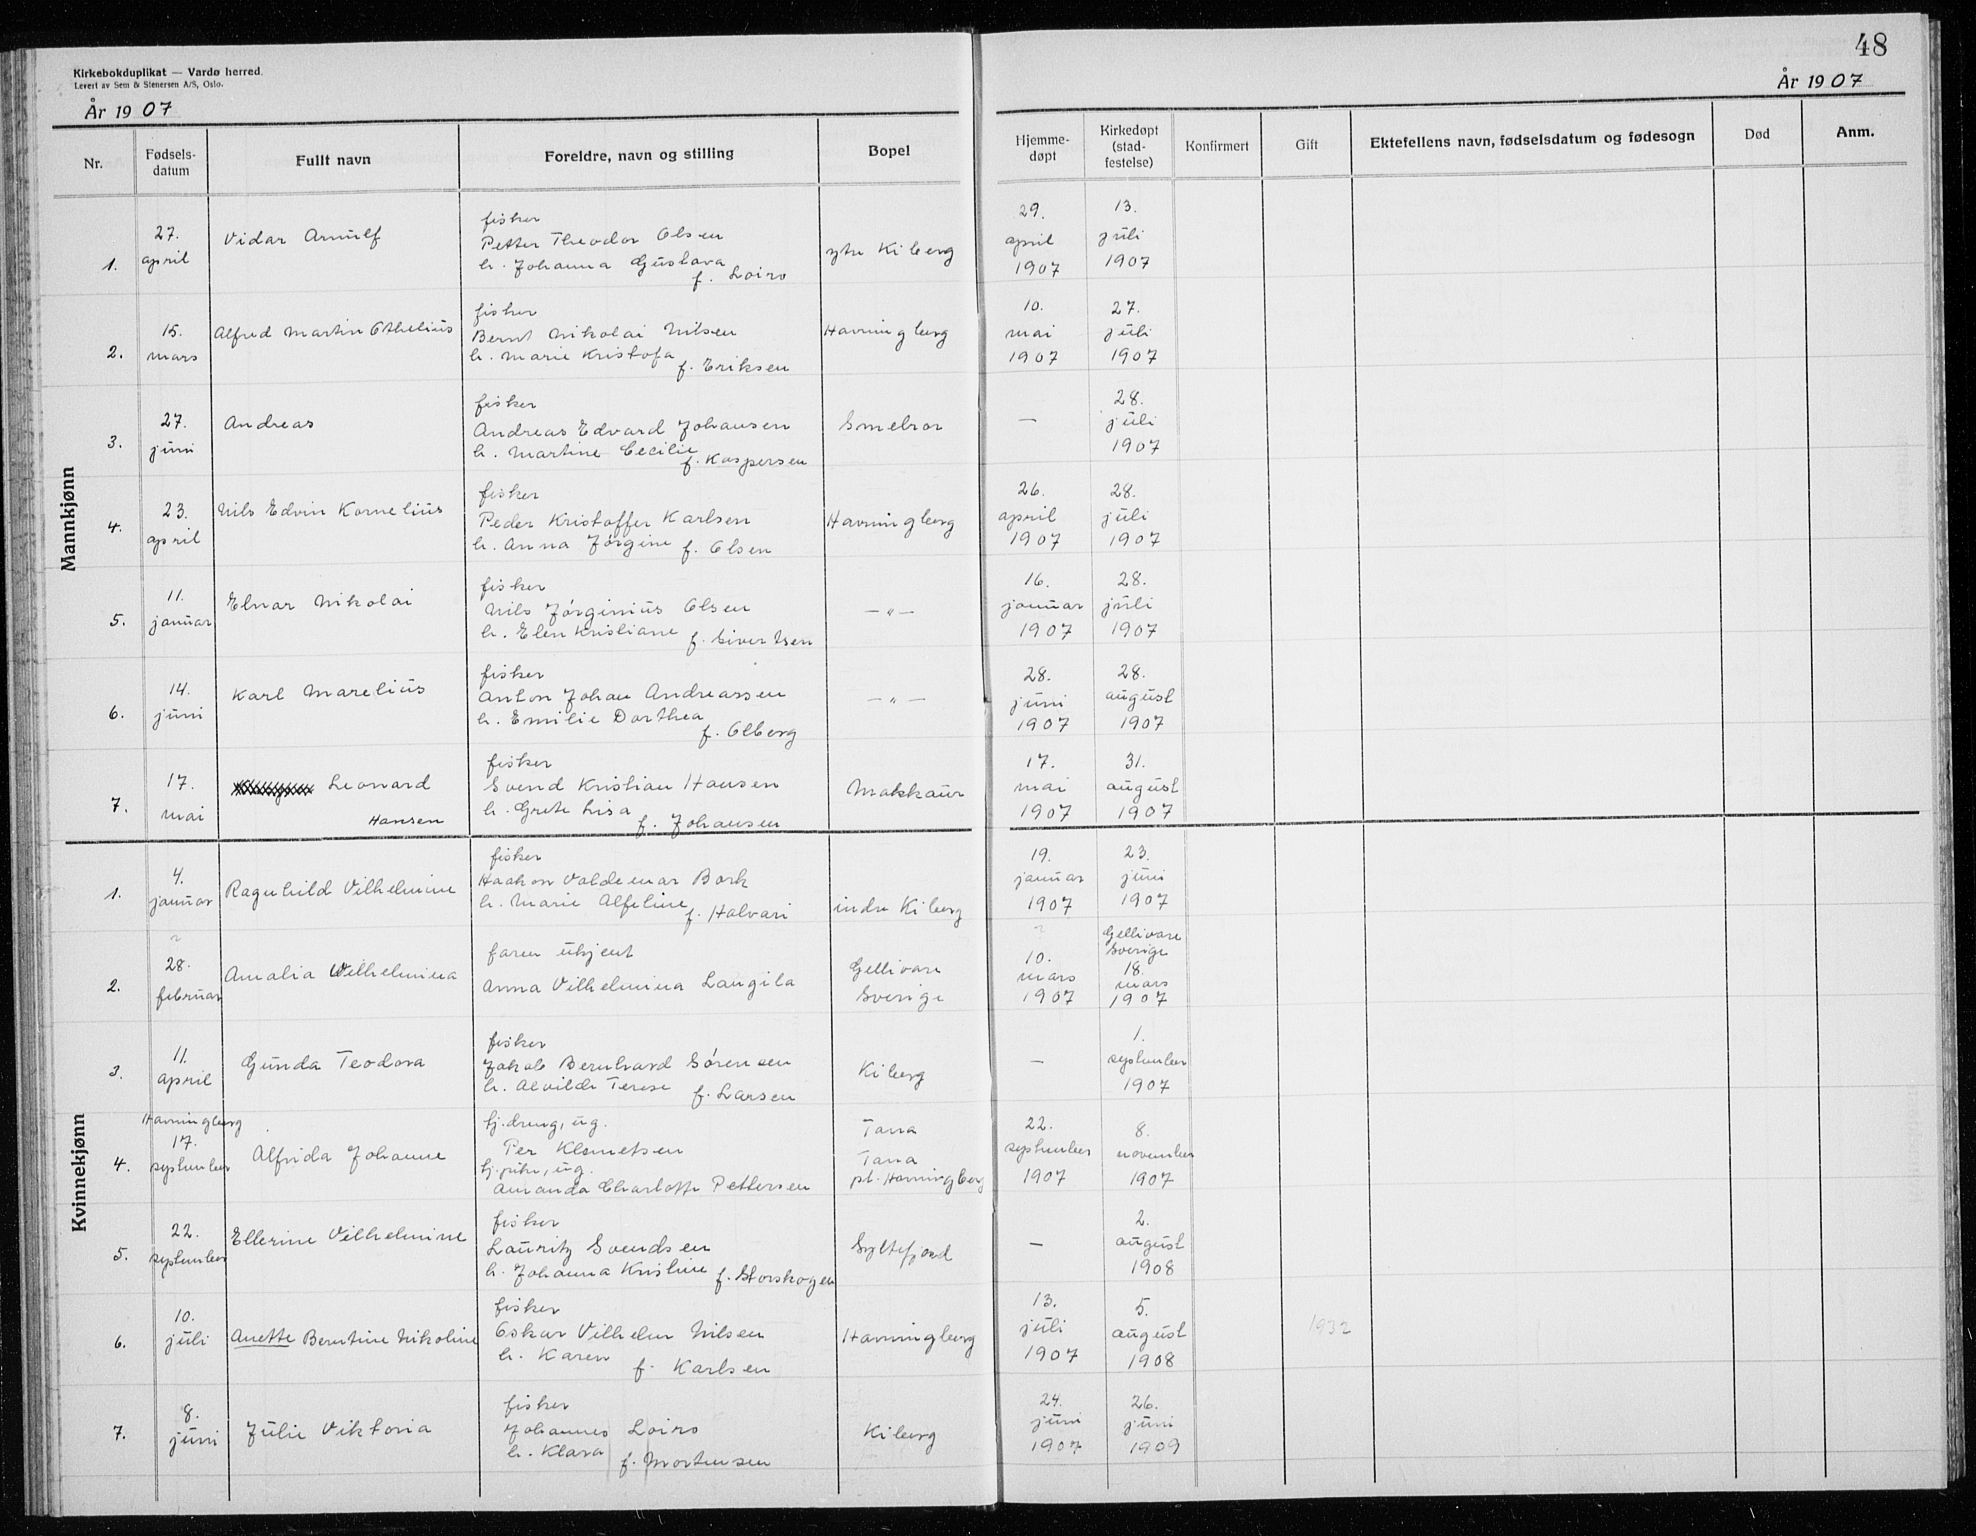 48
Kirkebokduplikat — Vardø herred.
Levert av Sem & Stenersen A/S, Oslo.
År 1907
År 1907
Nr. Fødsels-datum Fullt navn Foreldre, navn og stilling Bopel Hjemme-døpt Kirkedøpt (stad-festelse) Konfirmert Gift Ektefellens navn, fødselsdatum og fødesogn Død Anm.
Mannkjønn
1. 27. april Vidar Arnulf
fisker
Petter Theodor Olsen
h. Johanna Gustava
f. Loiro
ytre Kiberg
29. april 1907
13. juli 1907
2. 15. mars Alfred Martin Othelius
fisker
Bernt Nikolai Nilsen
h. Marie Kristofa
f. Eriksen
Havningberg
10. mai 1907
27. juli 1907
3. 27. juni Andreas
fisker
Andreas Edvard Johansen
h. Martine Cecilie
f. Kaspersen
Smelror
—
28. juli 1907
4. 23. april Nils Edvin Kornelius
fisker
Peder Kristoffer Karlsen
h. Anna Jørgine f. Olsen
Havningberg
26. april 1907
28. juli 1907
5. 11. januar Elnar Nikolai
fisker
Nils Jørginius Olsen
h. Elen Kristiane f. Sivertsen
—"—
16. januar 1907
28. juli 1907
6. 14. juni Karl Marelius
fisker
Anton Johan Andreassen
h. Emilie Dorthea
f. Olberg
—"—
28. juni 1907
28. august 1907
7. 17. mai Leonard
Hansen
fisker
Svend Kristian Hansen
h. Grete Lisa
f. Johansen
Makkaur
17. mai 1907
31. august 1907
Kvinnekjønn
1. 4. januar Ragnhild Vilhelmine
fisker
Haakon Valdemar Bork
h. Marie Alfeline
f. Halvari
indre Kiberg
19. januar 1907
23. juni 1907
2. ? 28. februar Amalia Wilhelmina
faren ukjent
Anna Vilhelmina Laugila
Gellivare
Sverige
? 10. mars 1907
Gellivare Sverige 18. mars 1907
3. 11. april Gunda Teodora
fisker
Jakob Bernhard Sørensen
h. Alvilde Terese f. Larsen
Kiberg
—
1. september 1907
4. Havningberg 17. september Alfrida Johanne
tj.dreng, ug.
Per Klemetsen
tj.pike, ug.
Amanda Charlotte Pettersen
Tana
Tana
pt. Havningberg
22. september 1907
8. november 1907
5. 22. september Ellerine Vilhelmine
fisker
Lauritz Svendsen
h. Johanna Kristine f. Storskogen
Syltefjord
—
2. august 1908
6. 10. juli Anette Berntine Nikoline
fisker
Oskar Vilhelm Nilsen
h. Karen
f. Karlsen
Havningberg
13. juli 1907
5. august 1908
1932
7. 8. juni Julie Viktoria
fisker
Johannes Loiro
h. Klara
f. Mortensen
Kiberg
24. juni 1907
26. juni 1909